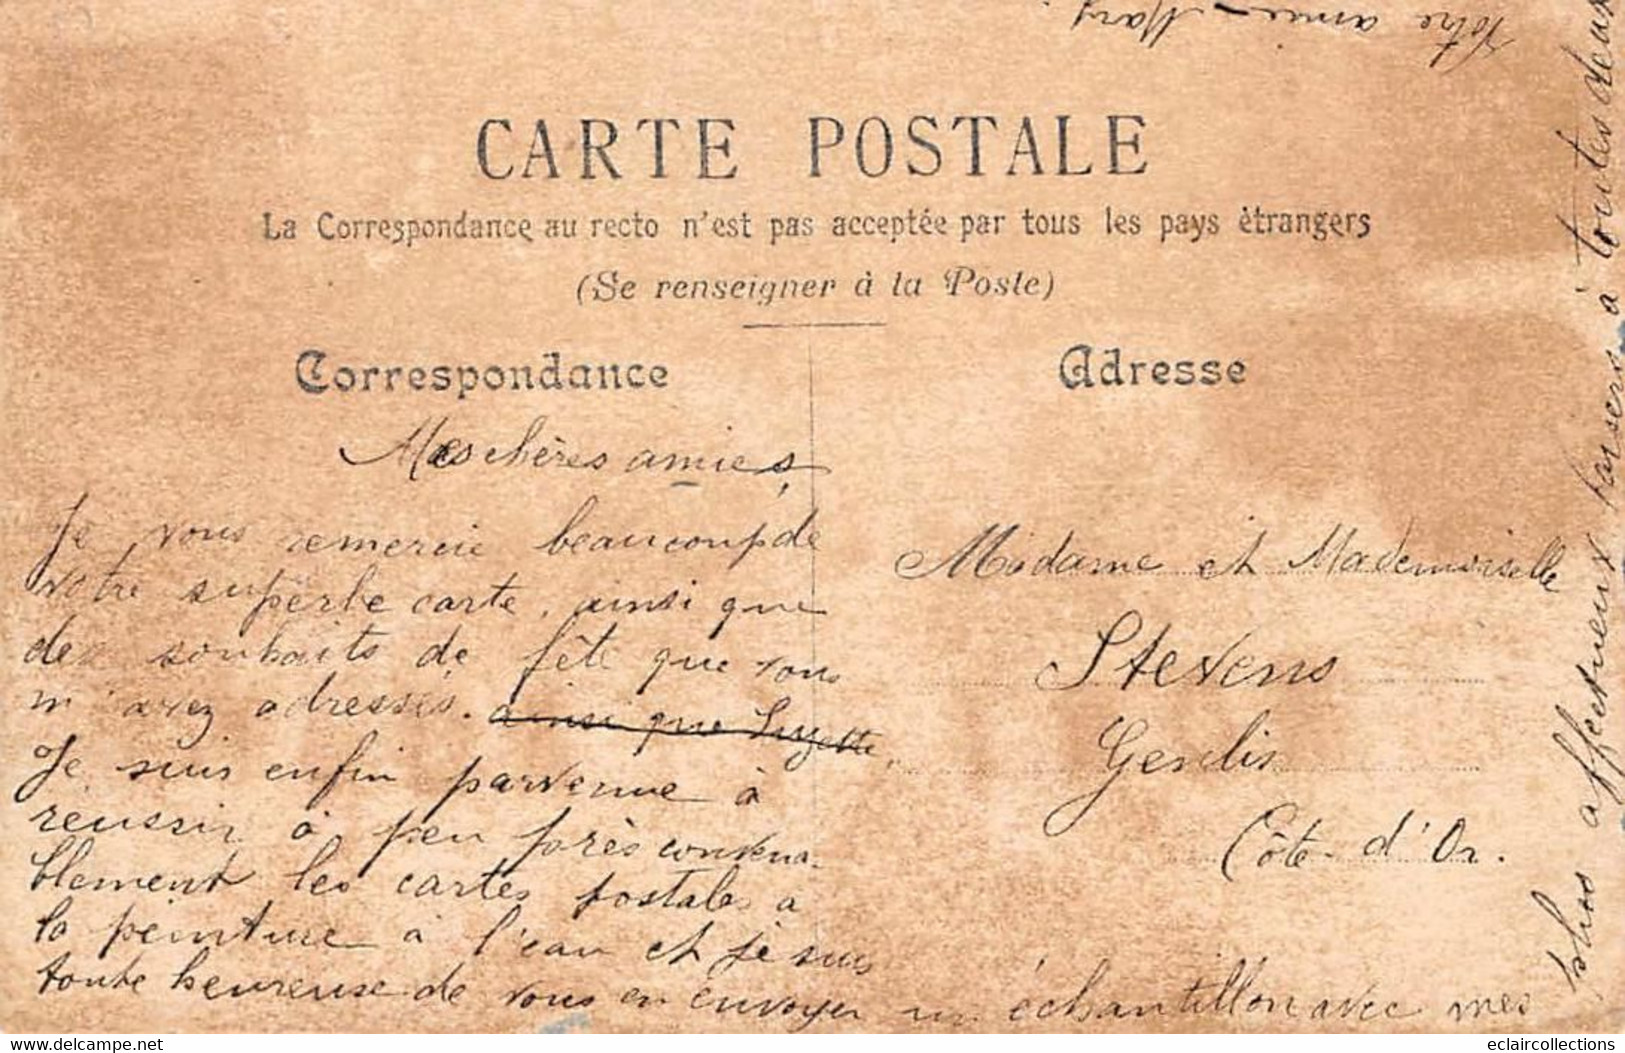 CARTE POSTALE
La Correspondance au recto n'est pas acceptée par tous les pays étrangers
(Se renseigner à la Poste)
Correspondance
Adresse
Mes chères amies,
Je vous remercie beaucoup de
votre superbe carte, ainsi que
des souhaits de fête que vous
m'avez adressés. ainsi que Suzette,
Je suis enfin parvenue à
réussir à peu près convena-
blement les cartes postales à
la peinture à l'eau et je suis
toute heureuse de vous en envoyer un échantillon avec mes
plus affectueux baisers à toutes deux
Votre amie - Mary.
Madame et Mademoiselle
Stevens
Genlis
Côte-d'Or.
www.delcampe.net
eclaircollections